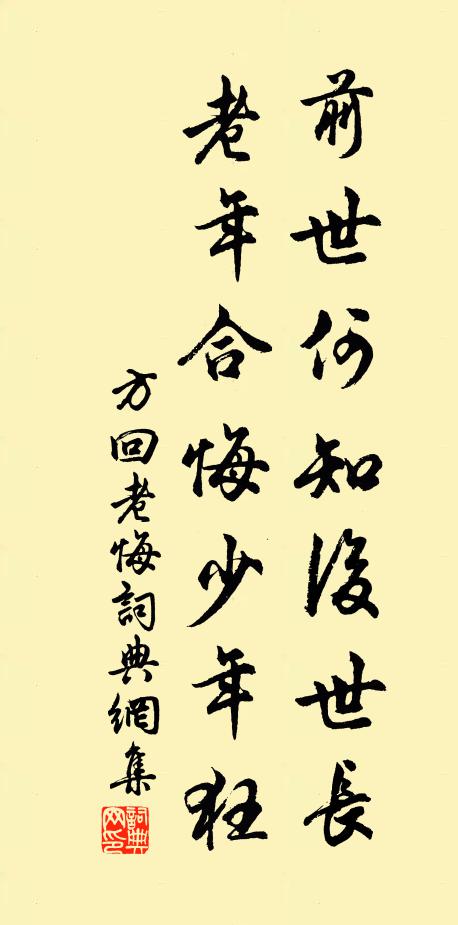 前世何知後世長
老年合悔少年狂
方回老悔詞典網集
詞典網印